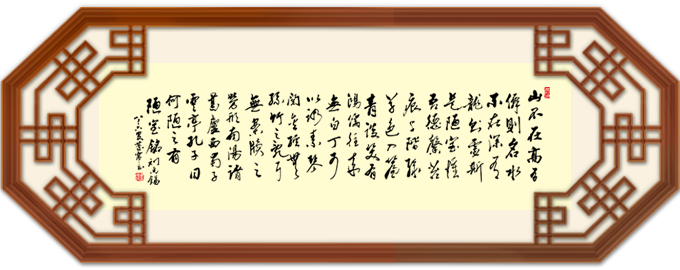 山不在高有
僊則名水
不在深有
龍則靈斯
是陋室惟
吾德馨苔
痕上階綠
草色入簾
青談笑有
鴻儒往來
無白丁可
以調素琴
閱金經無
絲竹之亂耳
無案牘之
勞形南陽諸
葛廬西蜀子
雲亭孔子曰
何陋之有
陋室銘 劉禹錫